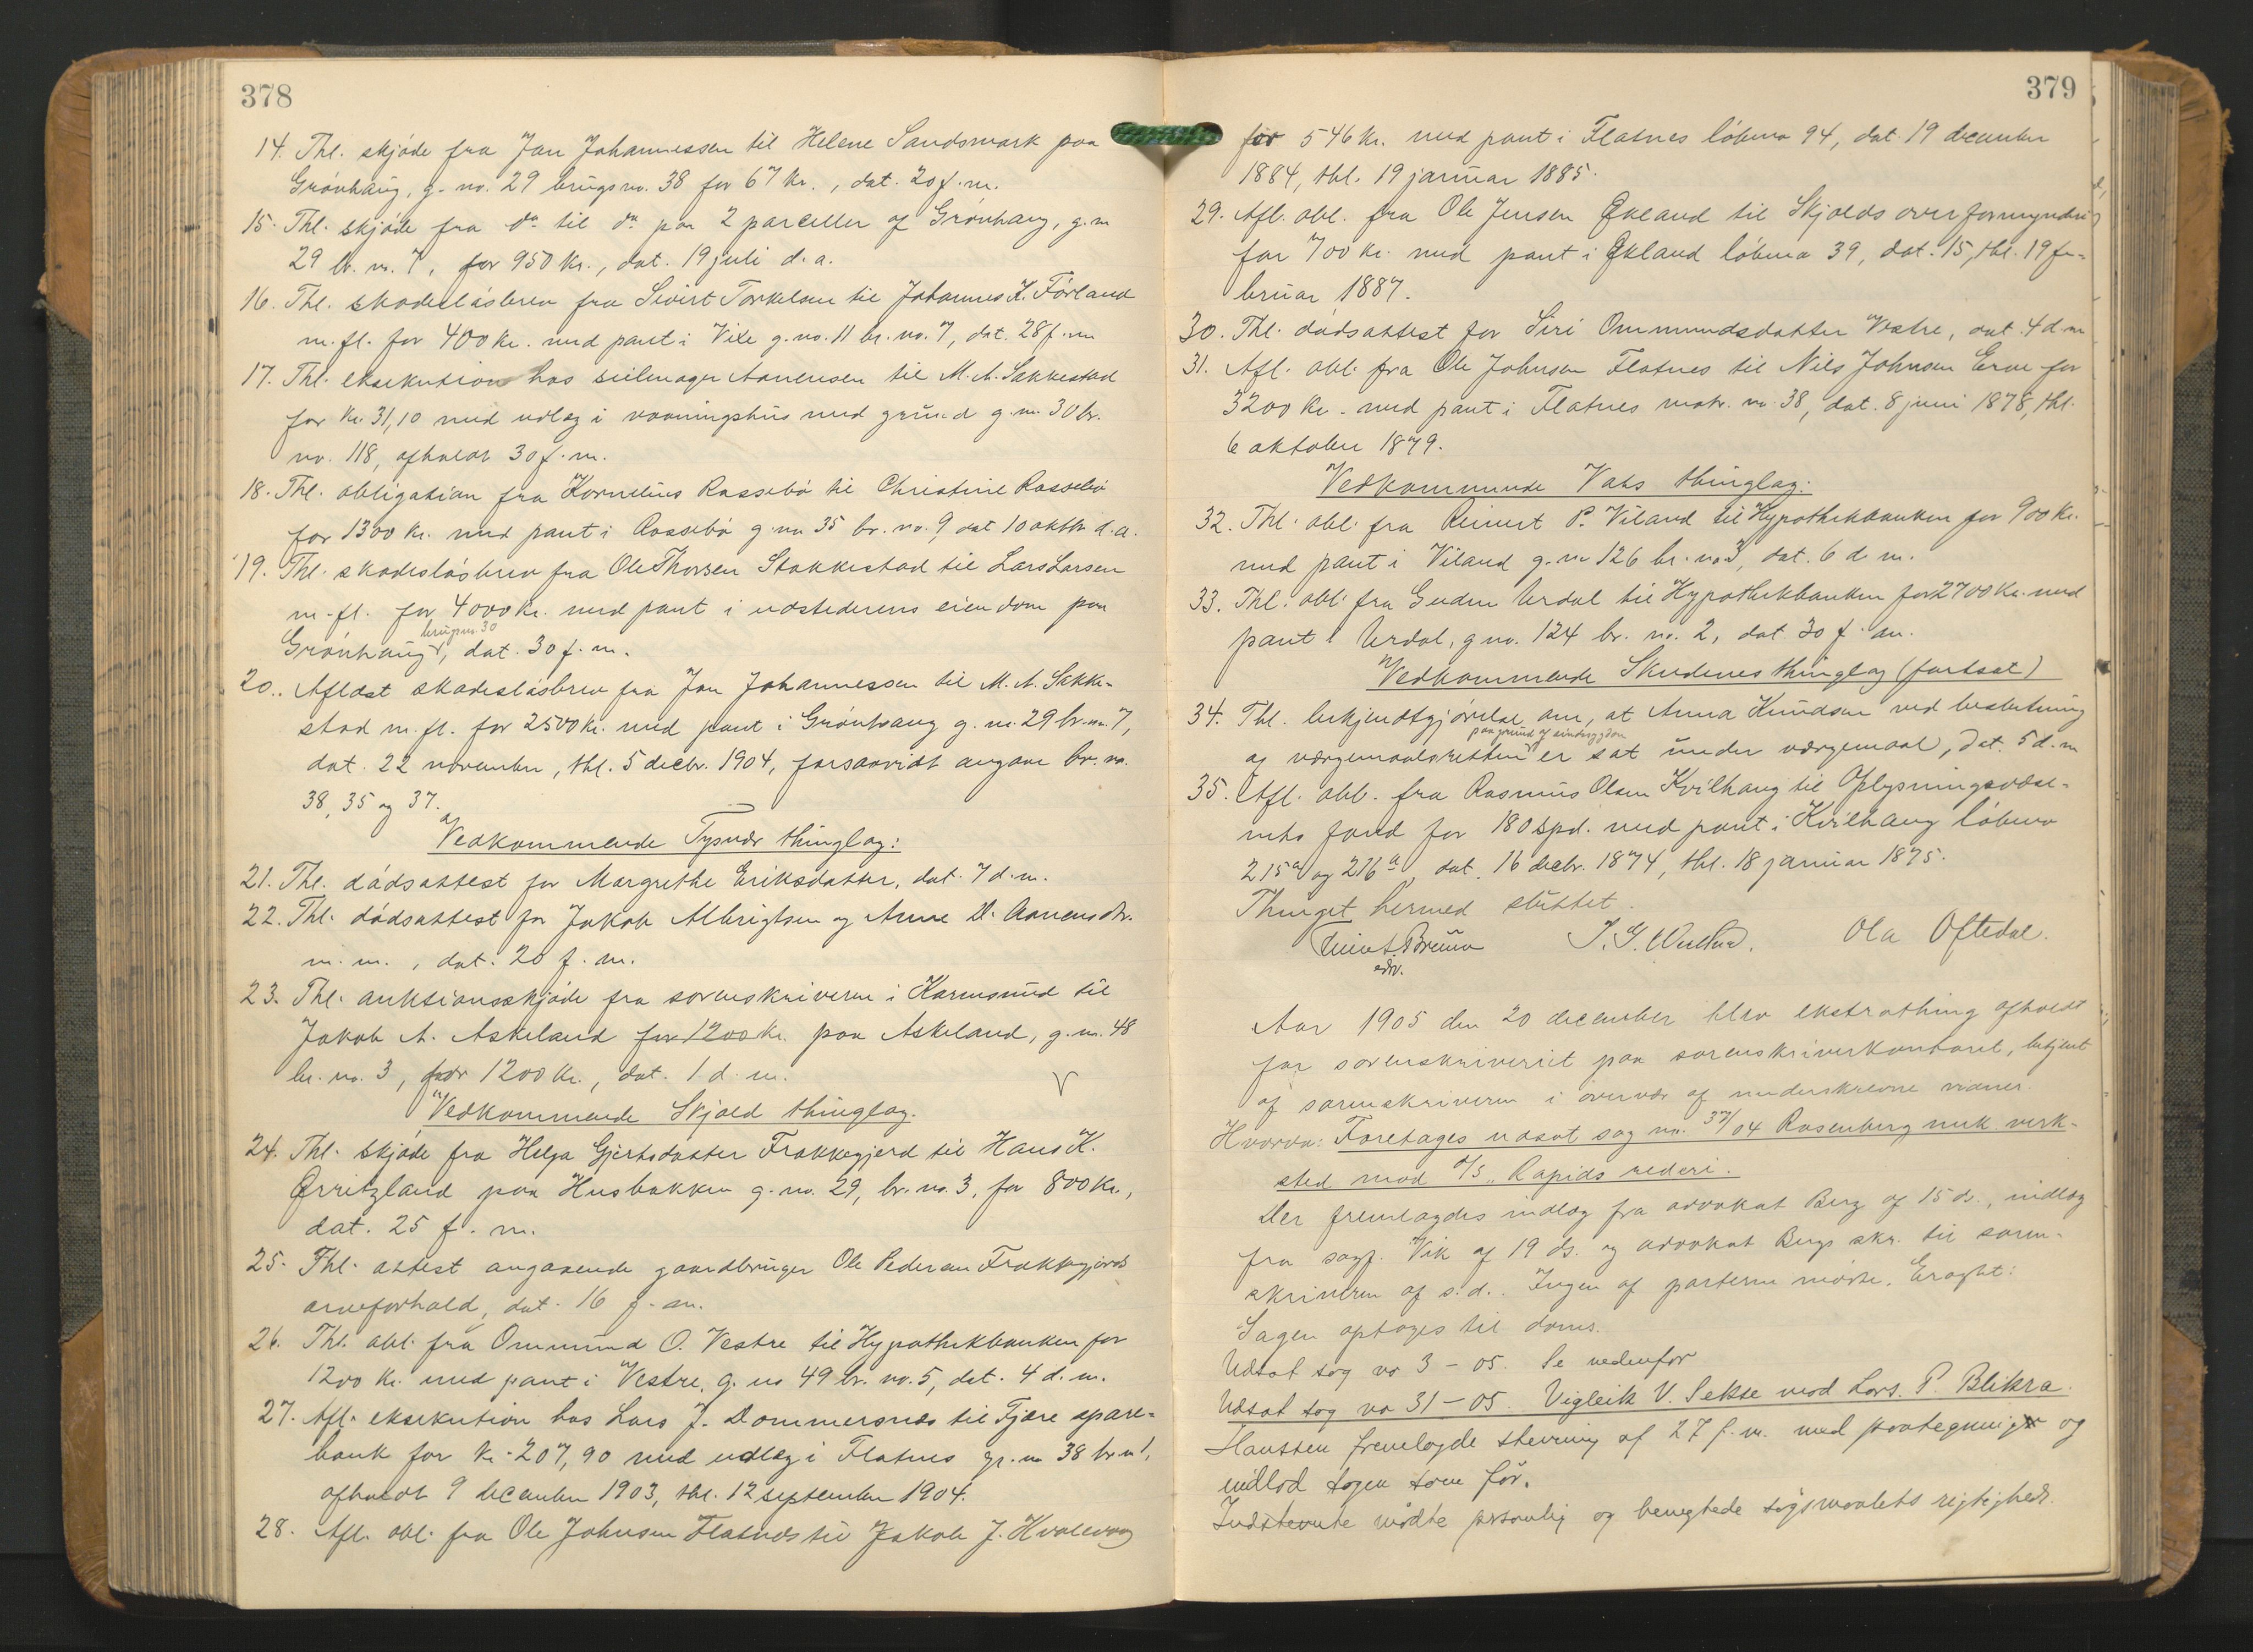 378
14. Thl. skjøde fra Jan Johannessen til Helene Sandsmark paa
Grønhaug, g. no. 29 brugsno. 38 for 67 kr., dat. 20 f. m.
15. Thl. skjøde fra do til do paa 2 parceller af Grønhaug, g. no
29 br. no. 7, for 950 kr., dat. 19 juli d. a.
16. Thl. skadesløsbrev fra Sivert Torkelsen til Johannes K. Førland
m. fl. for 400 kr. med pant i Vike g. no. 11 br. no. 7, dat. 28 f. m
17. Thl. eksekution hos seilmager Aanensen til M. A. Sakkestad
for kr. 31,10 med udlæg i vaaningshus med grund g. no. 30 br.
no. 118, afholdt 30 f. m.
18. Thl. obligation fra Kornelius Rossebø til Christine Rossebø
for 1300 kr. med pant i Rossebø g. no 35 br. no. 9, dat 10 oktbr d. a.
19. Thl. skadesløsbrev fra Ole Thorsen Stakkestad til Lars Larsen
m. fl. for 4000 kr. med pant i udstederens eiendom paa
brugsno. 30
Grønhaug, dat. 30 f. m.
20. Aflæst skadesløsbrev fra Jan Johannessen til M. A. Sakke-
stad m. fl. for 2500 kr. med pant i Grønhaug g. no. 29 br. no. 7,
dat. 22 november, thl. 5 decbr. 1904, forsaavidt angaar br. no.
38, 35 og 37.
Vedkommende Tysvær thinglag:
21. Thl. dødsattest for Margrethe Eriksdatter, dat. 7 d. m.
22. Thl. dødsattest for Jakob Albrigtsen og Anne D. Aanensdtr.
m. m., dat. 20 f. m.
23. Thl. auktionsskjøde fra sorenskriveren i Karmsund til
Jakob A. Askeland for 1200 kr. paa Askeland, g. no. 48
br. no. 3, for 1200 kr., dat. 1 d. m.
Vedkommende Skjold thinglag.
24. Thl. skjøde fra Helga Gjertsdatter Frakkagjerd til Hans K.
Ørritzland paa Husbakken g. no. 29, br. no. 3, for 800 kr.,
dat. 25 f. m.
25. Thl. attest angaaende gaardbruger Ole Pedersen Frakkagjerds
arveforhold, dat. 16 f. m.
26. Thl. obl. fra Ommund O. Vestre til Hypothekbanken for
1200 kr. med pant i Vestre, g. no 49 br. no. 5, dat. 4 d. m.
27. Afl. eksekution hos Lars J. Dommersnes til Fjære spare-
bank for kr. 207,90 med udlæg i Flatnes gr. no 38 br. no 1,
afholdt 9 december 1903, thl. 12 september 1904.
28. Afl. obl. fra Ole Johnsen Flatnes til Jakob J. Hvalevaag
379
for 546 kr. med pant i Flatnes løbeno 94, dat. 19 december
1884, thl. 19 januar 1885.
29. Afl. obl. fra Ole Jensen Økland til Skjolds overformynderi
for 700 kr. med pant i Økland løbeno 39, dat. 15, thl. 19 fe-
bruar 1887.
30. Thl. dødsattest for Siri Ommundsdatter Vestre, dat. 4 d. m
31. Afl. obl. fra Ole Johnsen Flatnes til Nils Johnsen Erve for
3200 kr. med pant i Flatnes matr. no 38, dat. 8 juni 1878, thl.
6 oktober 1879.
Vedkommende Vats thinglag:
32. Thl. obl. fra Reinert P. Viland til Hypothekbanken for 900 kr.
med pant i Viland g. no 126 br. no 3, dat. 6 d m.
33. Thl. obl. fra Guden Urdal til Hypothekbanken for 2700 kr. med
pant i Urdal, g no. 124 br. no. 2, dat 30 f. m.
Vedkommende Skudenes thinglag (fortsat)
34. Thl. bekjendtgjørelse om, at Anna Knudsen ved beslutning
paa grund af sindssygdom
af værgemaalsretten er sat under værgemaal, dat. 5 d. m
35. Afl. obl. fra Rasmus Olsen Kvilhaug til Oplysningsvæse-
nets fond for 180 spd. med pant i Kvilhaug løbeno
215a og 216a, dat. 16 decbr. 1874, thl. 18 januar 1875.
Thinget hermed sluttet.
Bruun Ola Oftedal.
edv.
Aar 1905 den 20 december blev ekstrathing afholdt
for sorenskriveriet paa sorenskriverkontoret, betjent
af sorenskriveren i overvær af underskrevne vidner.
Hvorda: Foretages udsat sag no. 37/04 Rosenberg mek. verk-
sted mod A/S "Rapids rederi.
Der fremlagdes indlæg fra advokat Berg af 15 ds., indlæg
fra sagf. Vik af 19 ds. og advokat Bergs skr. til soren-
skriveren af s. d.. Ingen af parterne mødte. Eragtet:
Sagen optages til doms.
Udsat sag no 3 - 05. Se nedenfor
Udsat sag no 31 - 05. Vigleik V. Sekse mod Lars. P. Blikra.
Hanssen fremlagde stevning af 27 f. m. med paategning og
indlod sagen som før.
Indstevnte mødte personlig og benegtede søgsmaalets rigtighed.